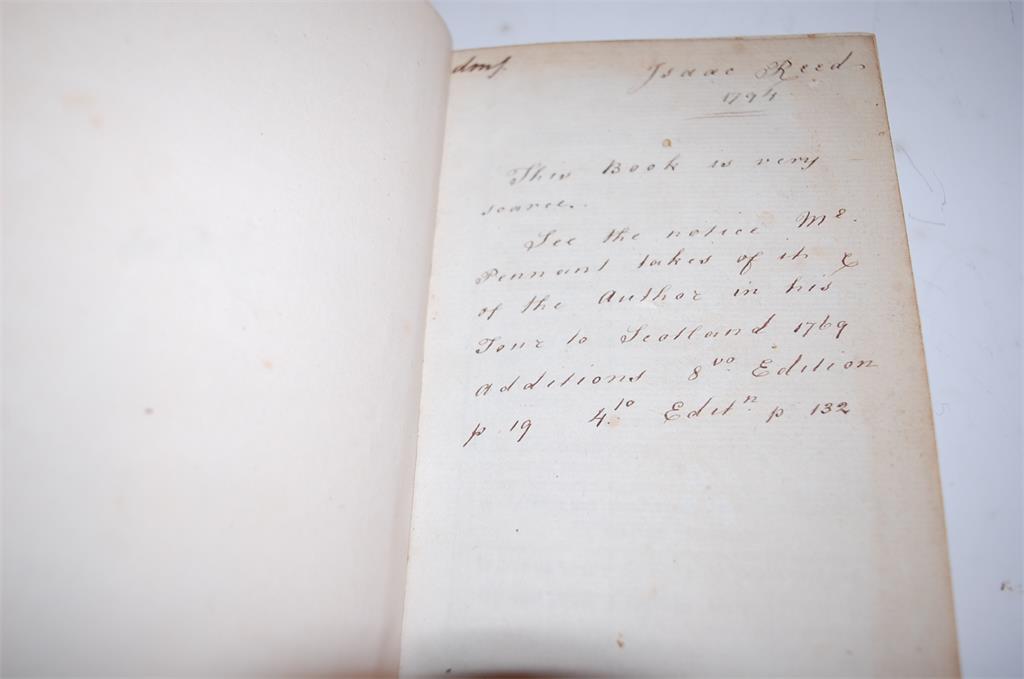 Isaac Reed
1794
This Book is very
scarce.
See the notice Mr.
Pennant takes of it &
of the Author in his
Tour to Scotland 1769
additions 8vo. Edition
p 19 4.to Editn. p 132